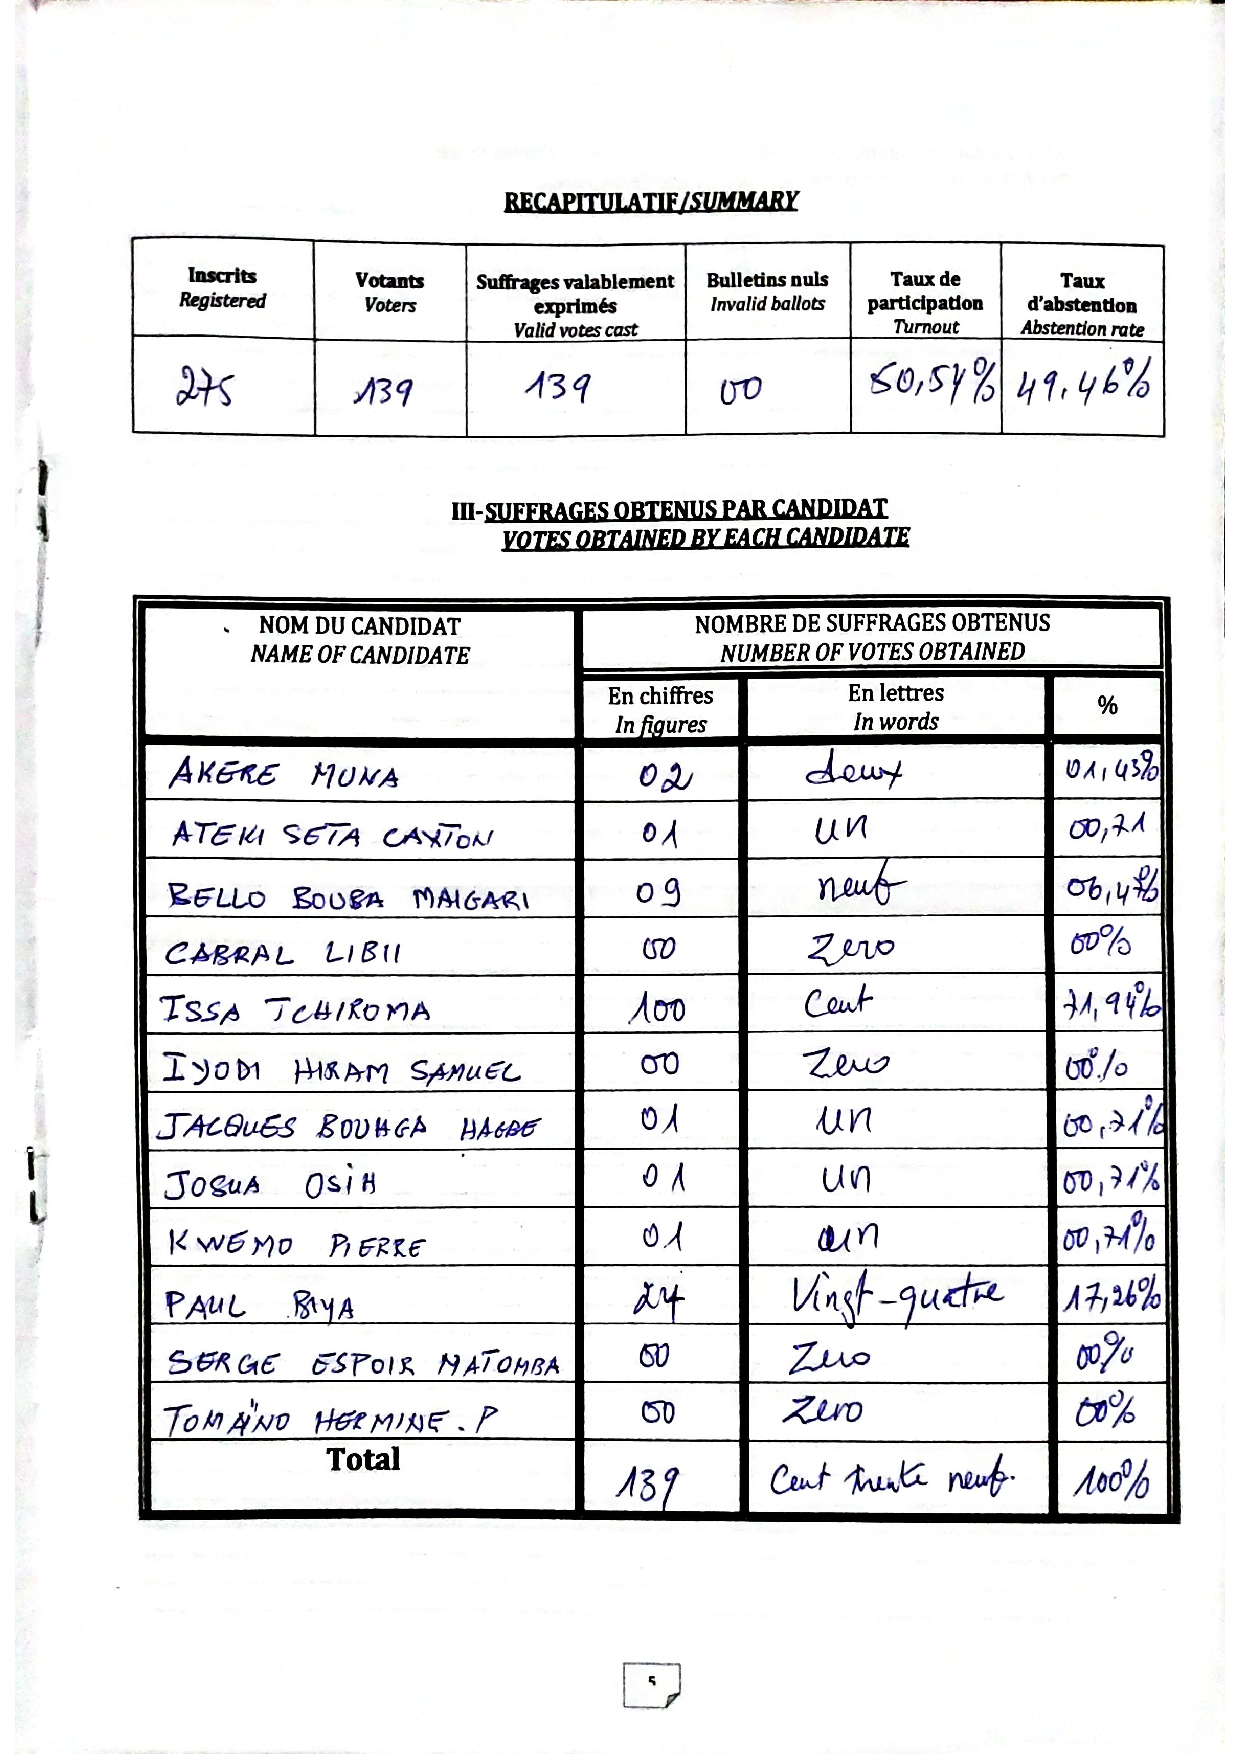 RECAPITULATIF/SUMMARY
Inscrits
Registered
Votants
Voters
Suffrages valablement
exprimés
Valid votes cast
Bulletins nuls
Invalid ballots
Taux de
participation
Turnout
Taux
d'abstention
Abstention rate
275 139 139 00 50,54% 49.46%
III-SUFFRAGES OBTENUS PAR CANDIDAT
VOTES OBTAINED BY EACH CANDIDATE
NOM DU CANDIDAT
NAME OF CANDIDATE
NOMBRE DE SUFFRAGES OBTENUS
NUMBER OF VOTES OBTAINED
En chiffres
In figures
En lettres
In words
%
AKERE MUNA 02 deux 01,43%
ATEKI SETA CAXTON 01 un 00,71
BELLO BOUBA MAIGARI 09 neuf 06,47%
CABRAL LIBII 00 Zero 00%
ISSA TCHIROMA 100 Cent 71,94%
IYODI HIRAM SAMUEL 00 Zero 00%
JACQUES BOUHGA HAGBE 01 un 00,71%
JOSUA OSIH 01 un 00,71%
KWEMO PIERRE 01 un 00,71%
PAUL BIYA 24 Vingt-quatre 17,26%
SERGE ESPOIR MATOMBA 00 Zero 00%
TOMAÏNO HERMINE. P 00 Zero 00%
Total 139 Cent trente neuf. 100%
5